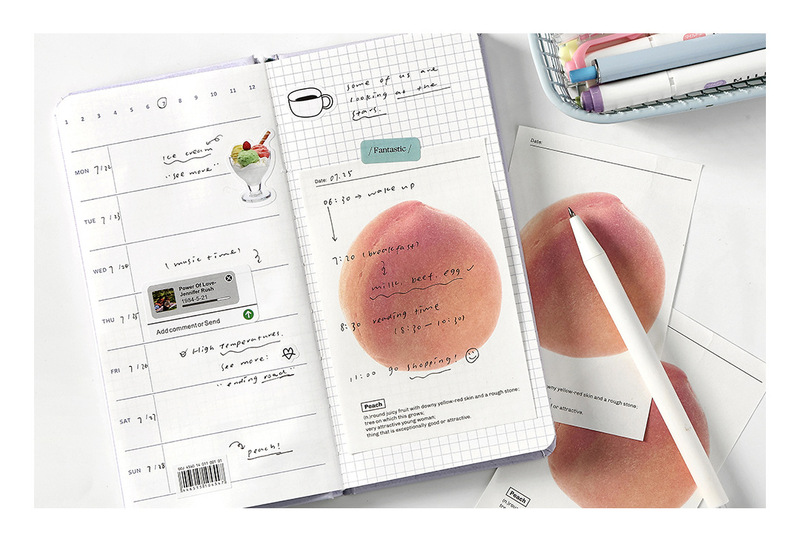 1 2 3 4 5 6 7 8 9 10 11 12
MON 7/22
ice cream
"see move"
TUE 7/23
WED 7/24
(music time!
Power Of Love-
Jennifer Rush
1984-5-21
THU 7/25
Add comment or Send
High Temperatures.
FRI 7/26
see more:
"ending road"
SAT 7/27
peach!
SUN 7/28
some of us are
looking at the
stars.
/ Fantastic /
Date: 07.25
06:30 → wake up
7:20 (breakfast?
milk. beef. egg ✓
8:30 reading time
(8:30 — 10:30)
11:00 go shopping!
Peach
(n.)round juicy fruit with downy yellow-red skin and a rough stone;
tree on which this grows;
very attractive young woman;
thing that is exceptionally good or attractive.
Date:
downy yellow-red skin and a rough stone;
or attractive.
Peach